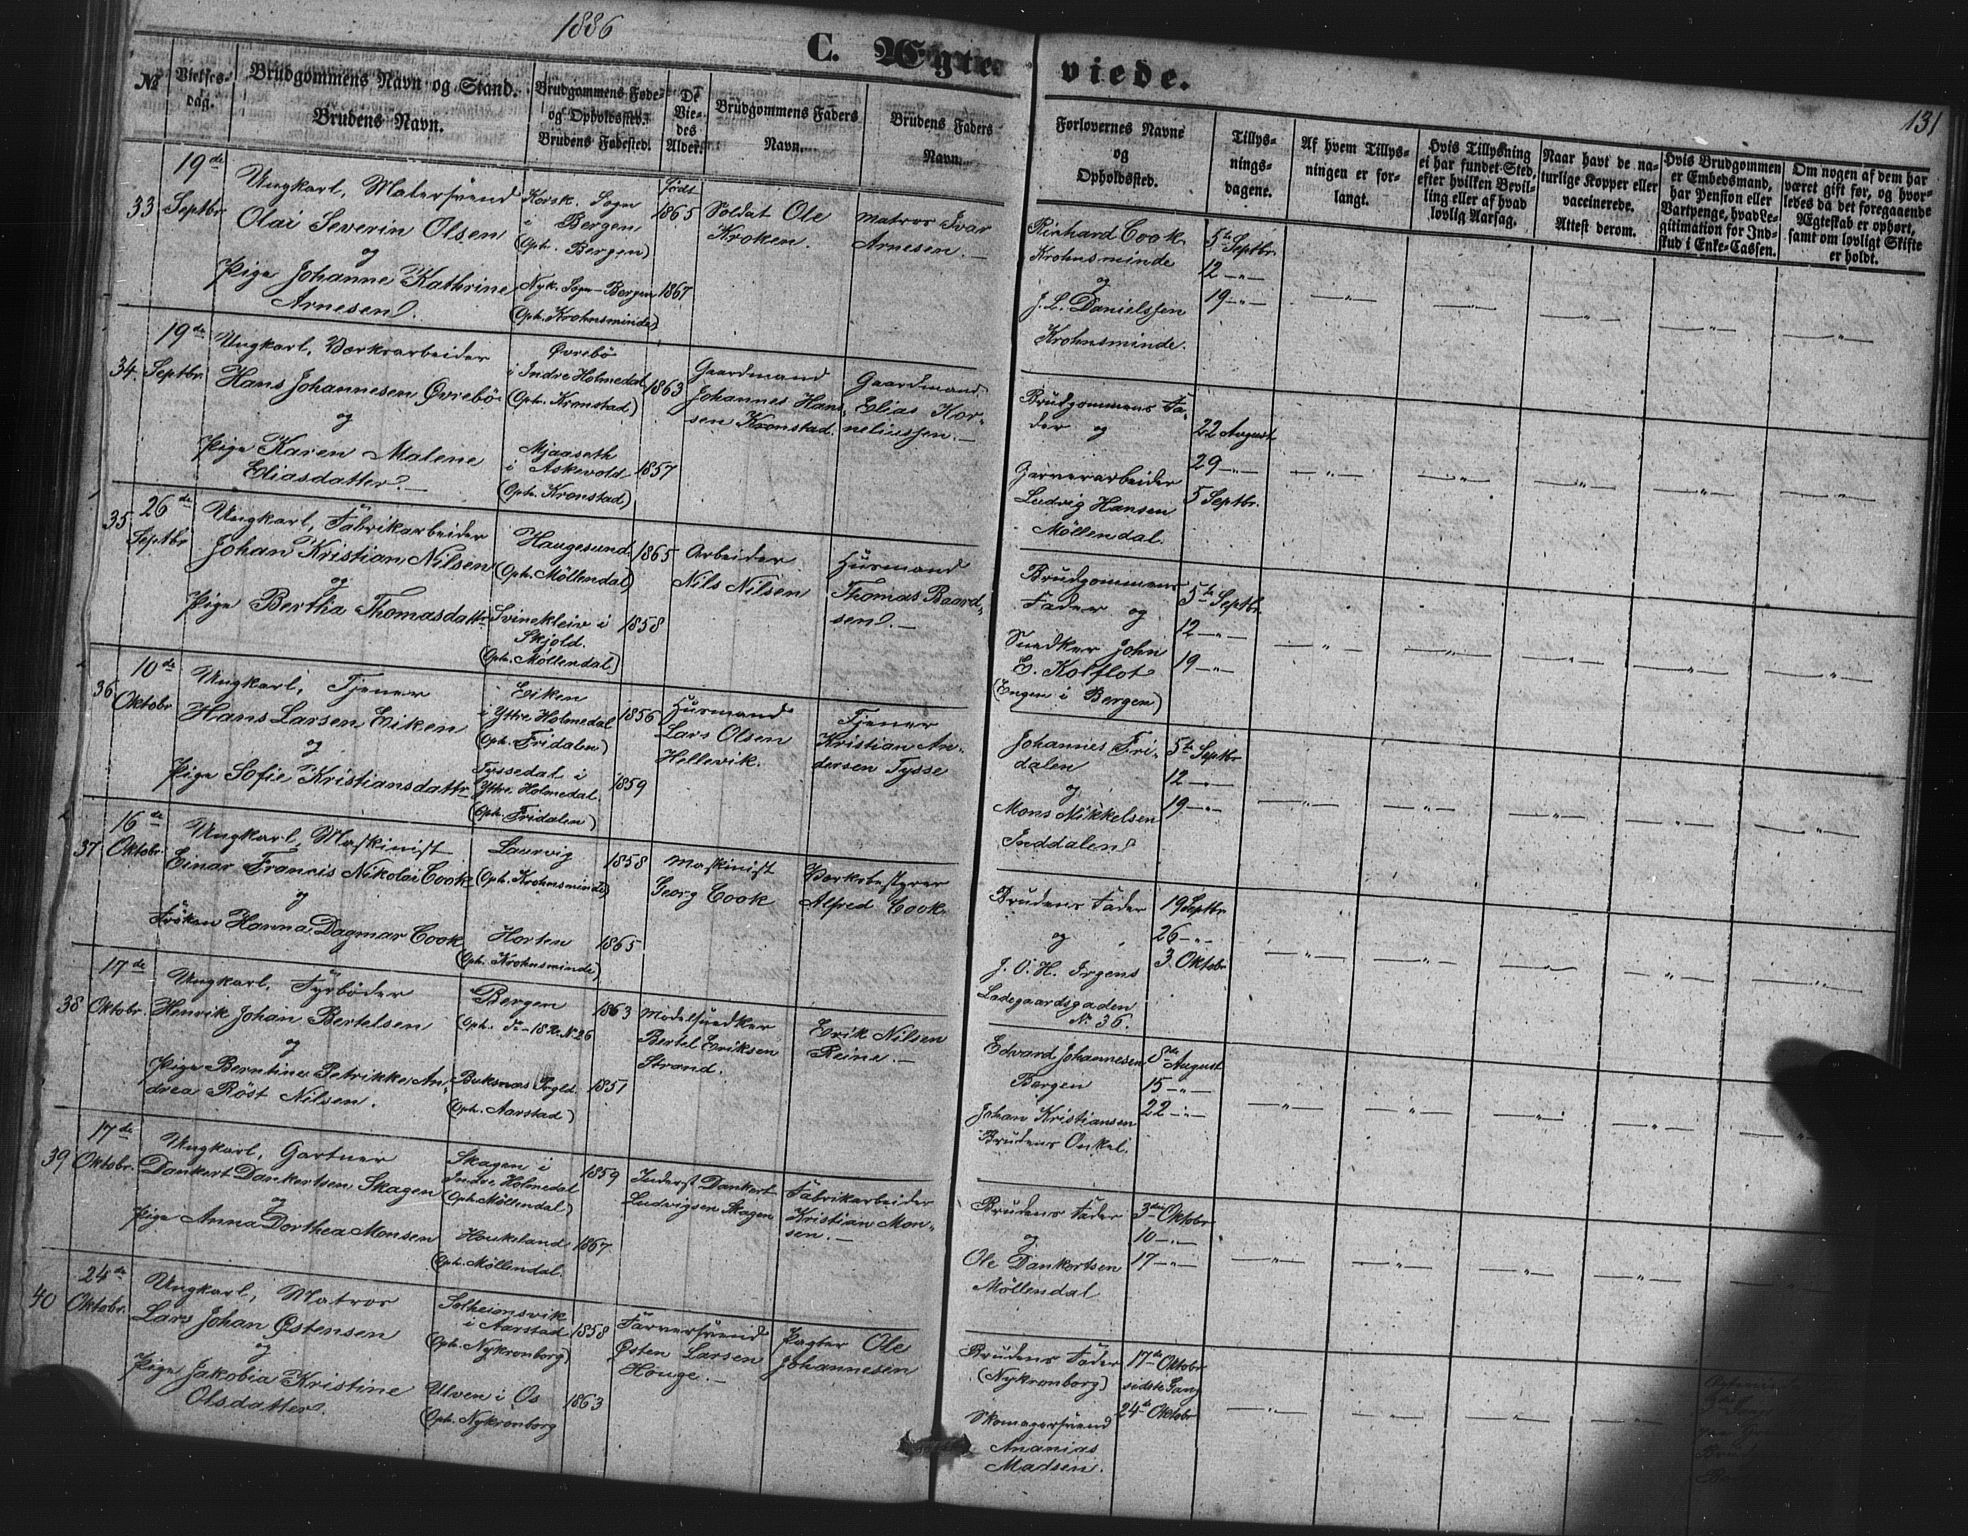 1886
C. Ægteviede.
131
№
Vielses-
dag.
Brudgommens Navn og Stand.
Brudens Navn.
Brudgommens Føde-
og Opholdssted.
Brudens Fødested.
De
Vie-
des
Alder.
Brudgommens Faders
Navn.
Brudens Faders
Navn.
Forlovernes Navne
og
Opholdssted.
Tillys-
nings-
dagene.
Af hvem Tillys-
ningen er for-
langt.
Hvis Tillysning
ei har fundet Sted,
efter hvilken Bevil-
ling eller af hvad
lovlig Aarsag.
Naar havt de na-
turlige Kopper eller
vaccinerede.
Attest derom.
Hvis Brudgommen
er Embedsmand,
har Pension eller
Vartpenge, hvad Le-
gitimation for Ind-
skud i Enke-Cassen.
Om nogen af dem har
været gift før, og hvor-
ledes da det foregaaende
Ægteskab er ophørt,
samt om lovligt Skifte
er holdt.
33
19de
Septbr
Ungkarl, Malersvend
Olai Severin Olsen
og
Pige Johanne Kathrine
Arnesen.
Korsk. Sogn
i Bergen
(Oph. Bergen)
Nyk. Sogn - Bergen
(Oph. Krohnsminde)
født
1865
1867
Soldat Ole
Kroken.
Matros Ivar
Arnesen.
Richard Cook
Krohnsminde
og
J. L. Danielssen
Krohnsminde.
5te Septbr
12 -"-
19 -"-
34.
19de
Septbr
Ungkarl, Værksarbeider
Hans Johannesen Øvrebö
og
Pige Karen Malene
Eliasdatter.
Øvrebö
i Indre Holmedal
(Oph. Kronstad)
Mjaaseth
i Askevold
(Oph. Kronstad)
1863
1857
Gaardmand
Johannes Han-
sen Kronstad.
Gaardmand
Elias Kor-
neliussen.
Brudgommens Fa-
der og
Garverarbeider
Ludvig Hansen
Möllendal.
22 August
29 -"-
5 Septbr.
35
26de
Septbr
Ungkarl, Fabrikarbeider
Johan Kristian Nilsen
og
Pige Bertha Thomasdattr
Haugesund
(Oph. Möllendal)
Svinekleiv i
Skjold.
(Oph. Möllendal)
1865
1858
Arbeider
Nils Nilsen
Husmand
Thomas Baard-
sen.
Brudgommens
Fader og
Snedker John
E. Kolflot
(Engen i Bergen)
5te Septbr.
12 -"-
19 -"-
36
10de
Oktobr
Ungkarl, Tjener
Hans Larsen Eiken
og
Pige Sofie Kristiansdattr
Eiken
i Ytre Holmedal
(Oph. Fridalen)
Tyssedal i
Ytre Holmedal.
(Oph. Fridalen)
1856
1859
Husmand
Lars Olsen
Hellevik.
Tjener
Kristian An-
dersen Tysse
Johannes Fri-
dalen
og
Mons Mikkelsen
Inddalen
5te Septbr
12 -"-
19 -"-
37
16de
Oktobr
Ungkarl, Maskinist
Einar Francis Nikolai Cook
og
Fröken Hanna Dagmar Cook
Laurvig
(Oph. Krohnsminde)
Horten
(Oph. Krohnsminde)
1858
1865
Maskinist
Georg Cook
Værksbestyrer
Alfred Cook.
Brudens Fader
og
J. O. H. Irgens
Ladegaardsgaden
N. 36.
19 Septbr
26 -"-
3 Oktobr
38
17de
Oktobr.
Ungkarl, Fyrböder
Henrik Johan Bertelsen
og
Pige Berntine Petrikke An-
drea Röst Nilsen.
Bergen
Buksnæs Prgld.
(Oph. Aarstad)
1863
1851
Modelsnedker
Bertel Eriksen
Strand.
Erik Nilsen
Reine.
Edvard Johannesen
Bergen
Johan Kristiansen
Brudens Onkel.
8de August
15 -"-
22 -"-
39
17de
Oktobr.
Ungkarl, Gartner
Dankert Dankertsen Skagen
og
Pige Anna Dorthea Monsen
Skagen i
Indre Holmedal
(Oph. Möllendal)
Houkeland
(Oph. Möllendal.
1859
1867
Inderst Dankert
Ludvigsen Skagen
Fabrikarbeider
Kristian Mon-
sen.
Brudens Fader
og
Ole Dankertsen
Möllendal
3die Oktobr
10 -"-
17 -"-
40
24de
Oktobr.
Ungkarl, Matros
Lars Johan Østensen
og
Pige Jakobia Kristine
Olsdatter.
Solheimsvik
i Aarstad
(Oph. Nykronborg)
Ulven i Os
(Oph. Nykronborg
1858
1863
Farversvend
Østen Larsen
Houge.
Pagter Ole
Johannesen
Brudens Fader
(Nykronborg)
Skomagersvend
Ananias
Madsen.
17de Oktobr
sidste Gang
24de Oktobr